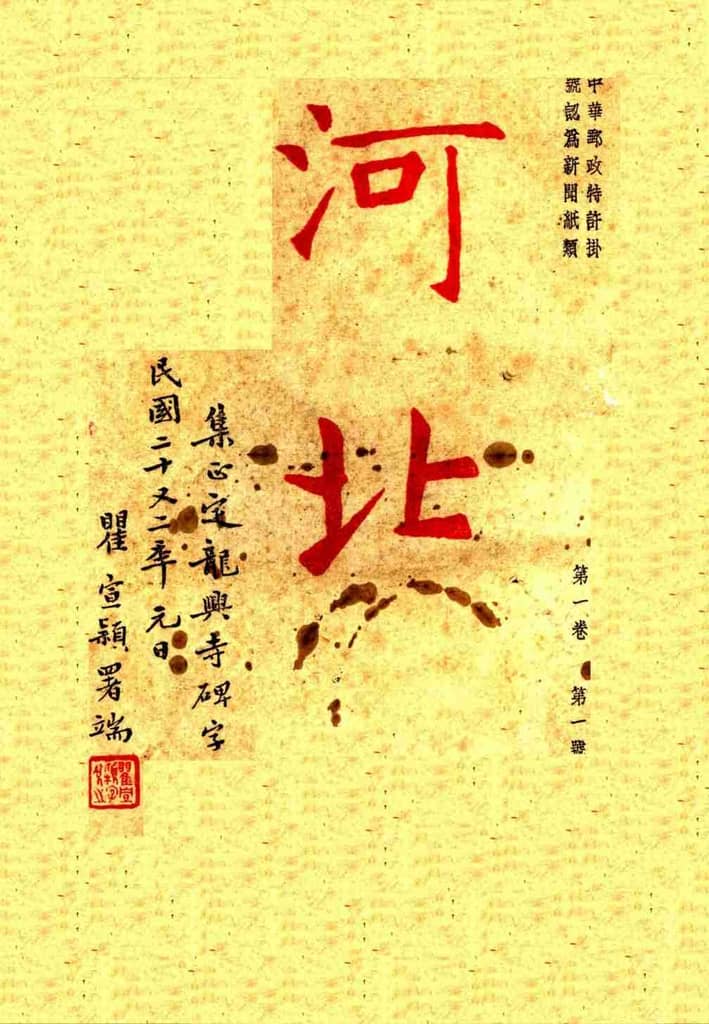 中華郵政特許掛
號認為新聞紙類
河北
第一卷 第一號
集正定龍興寺碑字
民國二十又二年元日
瞿宣穎署端